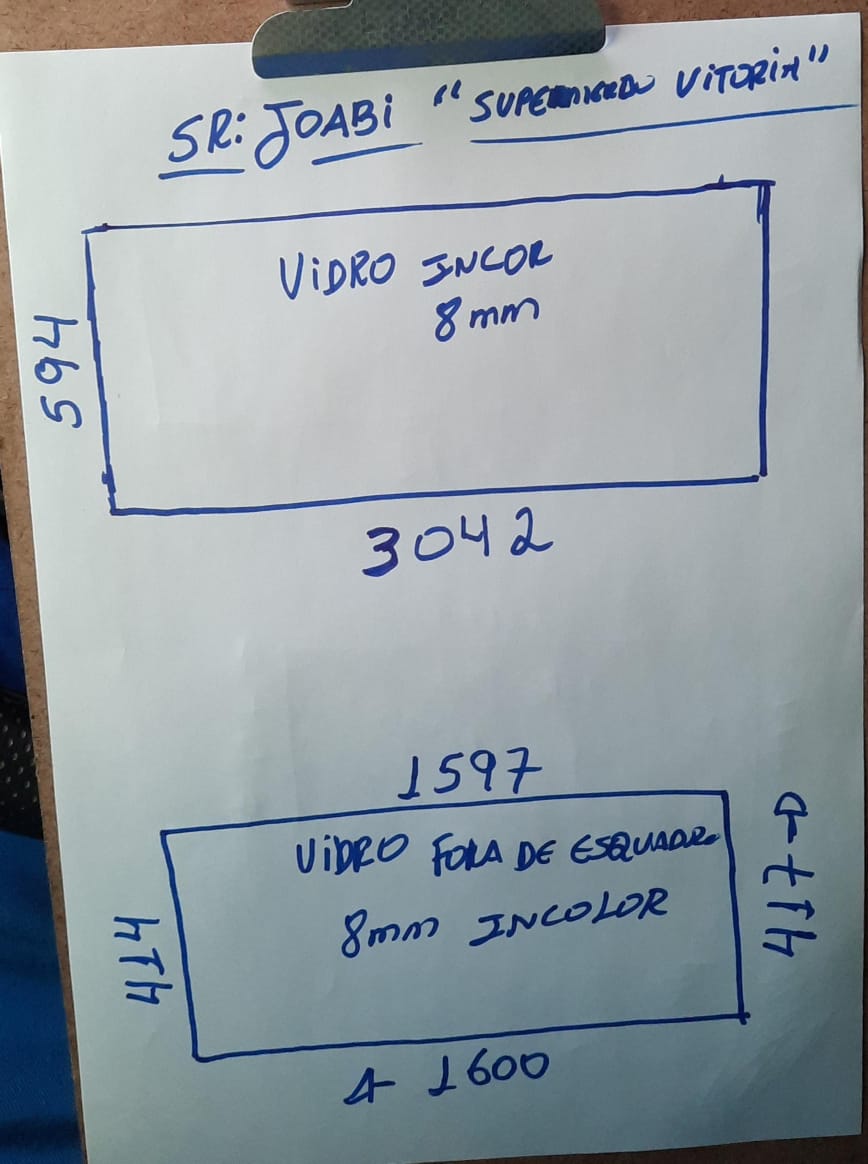 SR: JOABI "SUPERMERCADO VITORIA"
VIDRO INCOR
8mm
594
3042
1597
VIDRO FORA DE ESQUADRO
8mm INCOLOR
414
417
1600